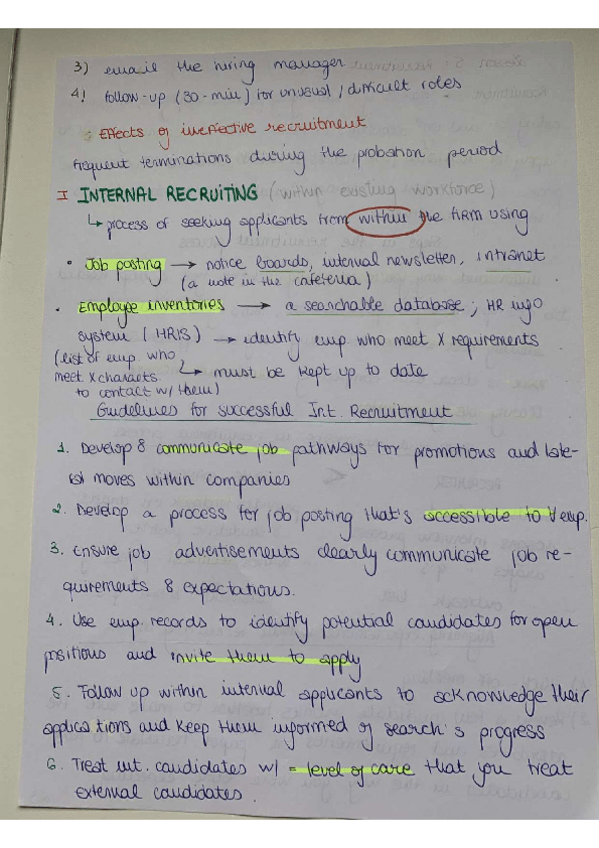 3) email the hiring manager
4) follow-up (30-min) for unusual / difficult roles
Effects of ineffective recruitment
frequent terminations during the probation period
I INTERNAL RECRUITING (within existing workforce)
↳ process of seeking applicants from within the firm using
• Job posting → notice boards, internal newsletter, intranet
(a note in the cafeteria)
• Employee inventories → a searchable database; HR info
system (HRIS) → identify emp who meet X requirements
(list of emp who ↳ must be kept up to date
meet X characts.
to contact w/ them)
Guidelines for successful Int. Recruitment
1. Develop & communicate job pathways for promotions and late-
ral moves within companies
2. Develop a process for job posting that's accessible to ∀ emp.
3. Ensure job advertisements clearly communicate job re-
quirements & expectations.
4. Use emp. records to identify potential candidates for open
positions and invite them to apply
5. Follow up within internal applicants to acknowledge their
applications and keep them informed of search's progress
6. Treat int. candidates w/ = level of care that you treat
external candidates.